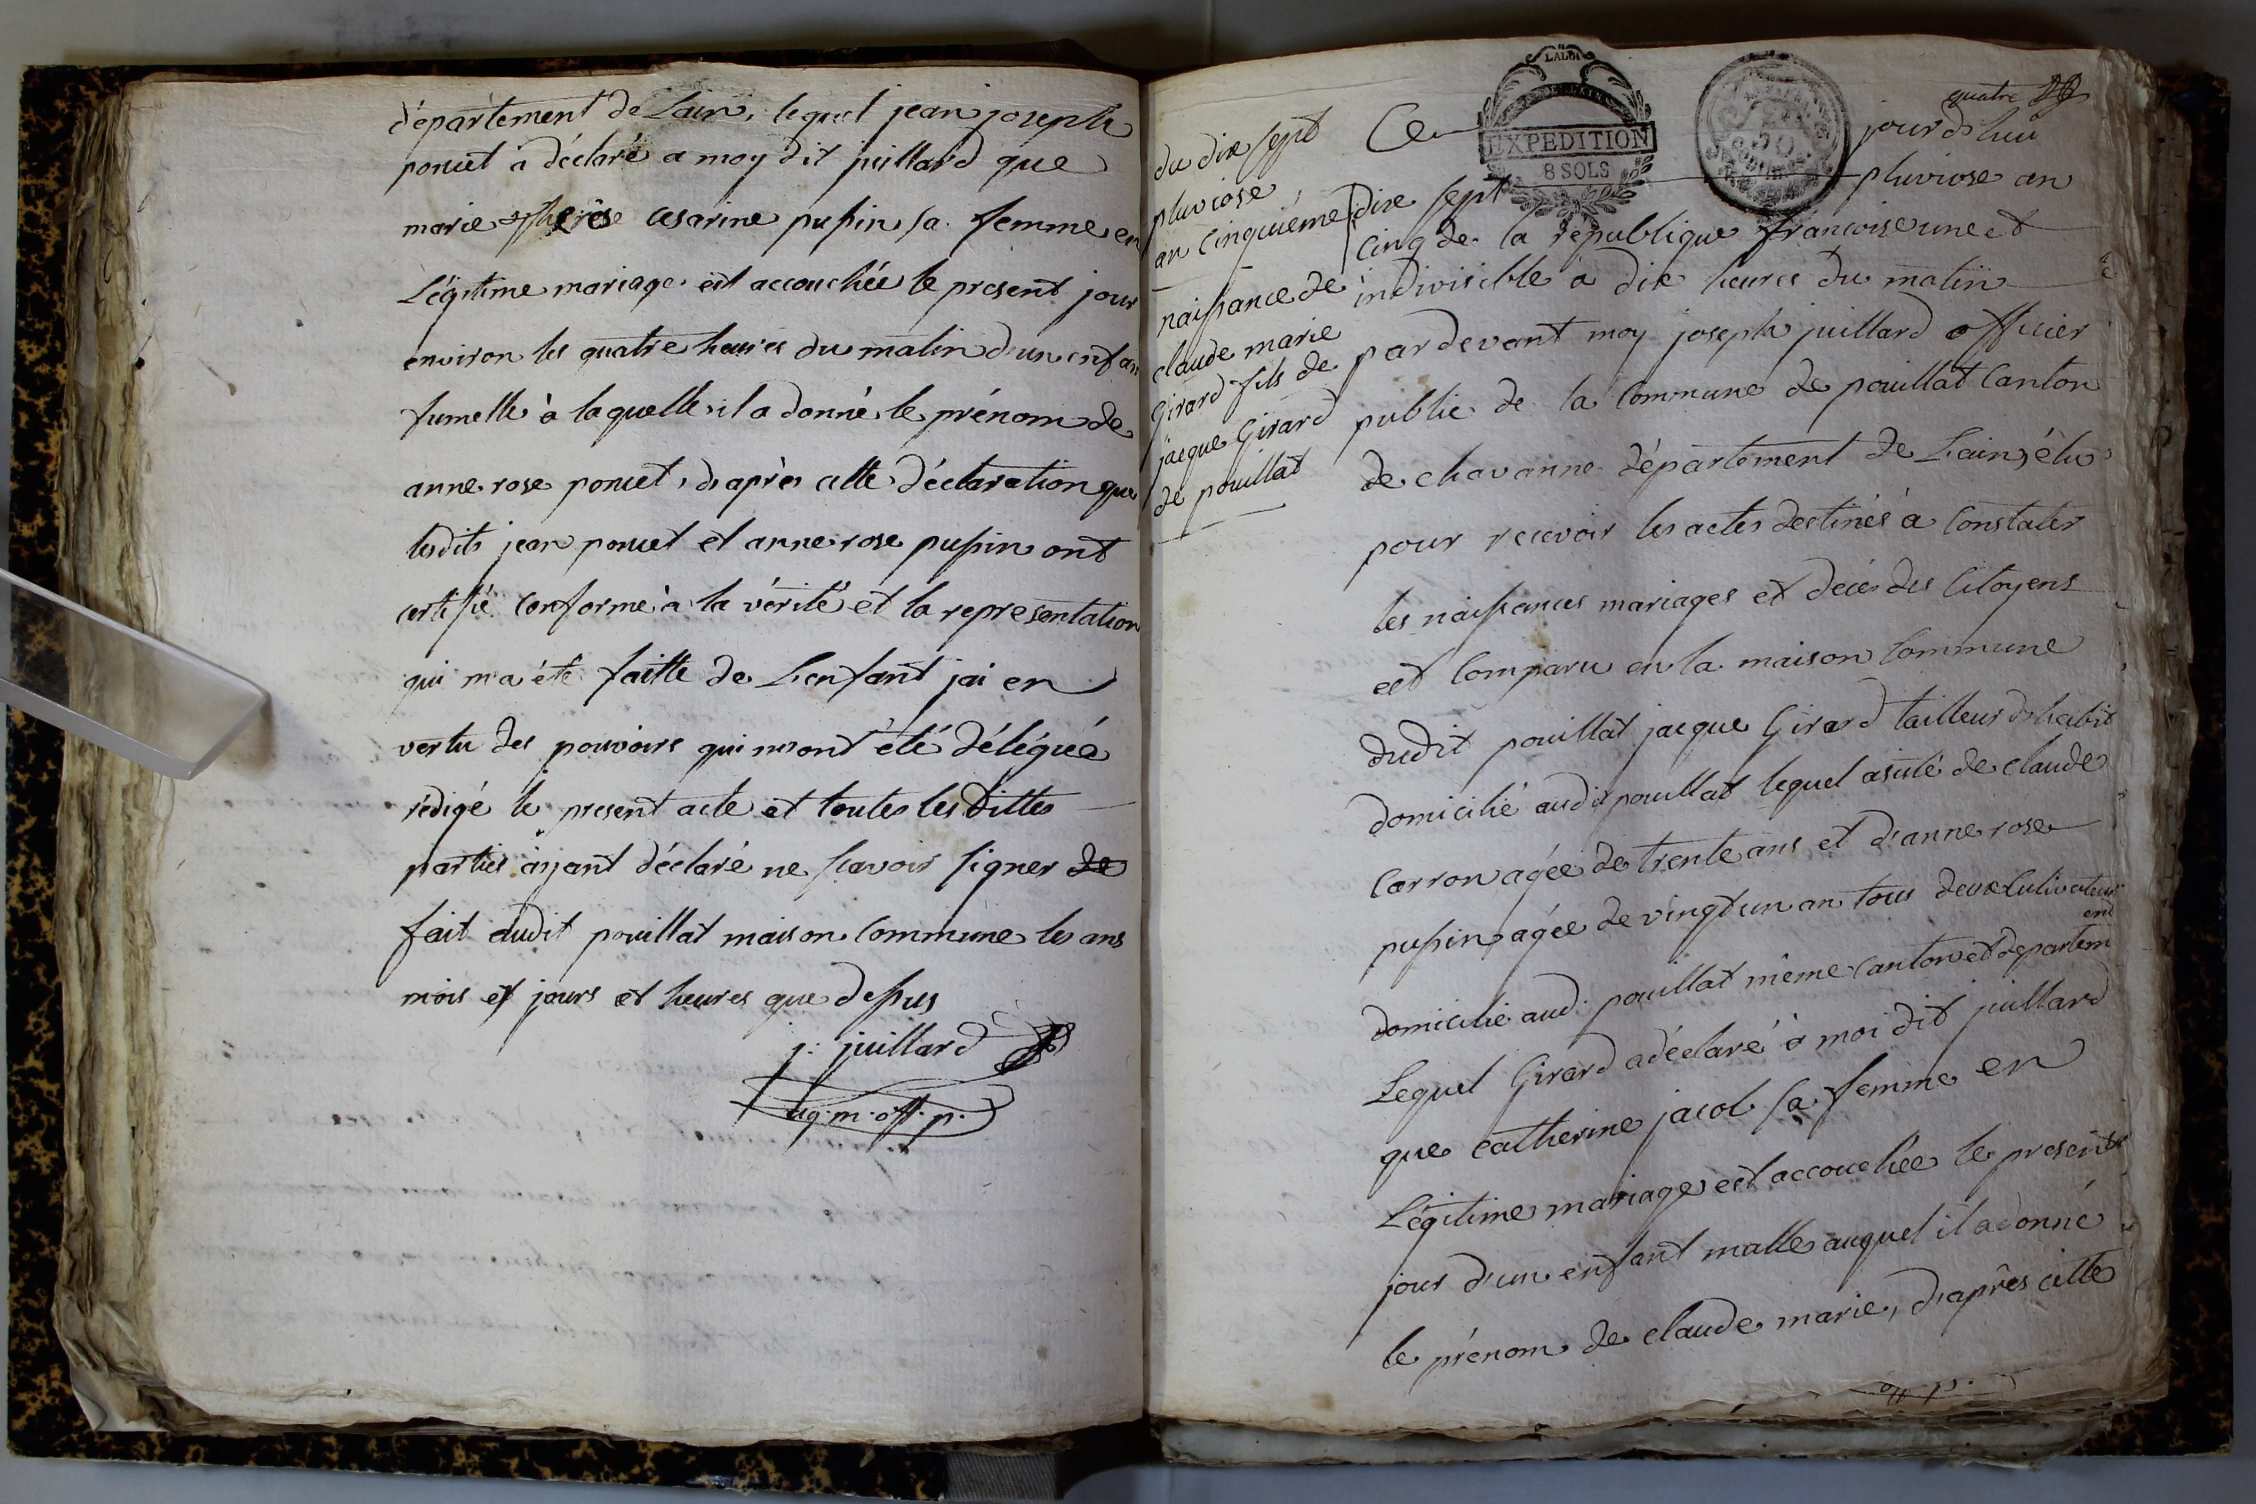 département de Lain, lequel jean joseph
poncet à déclaré a moy dit juillard que
marie therèse cesarine pupin sa femme en
Légitime mariage est accouchée le present jour
environ les quatre heures du matin d'un enfan
fumelle à laquelle il a donné le prénom de
anne rose poncet, d'après cette déclaration que
lesdits jean poncet et anne rose pupin ont
certifié conforme à la vérité et la representation
qui m'a été faitte de L'enfant jai en
vertu des pouvoirs qui m'ont été délégué
rédigé le present acte et toutes les dittes
parties ayant déclaré ne scavoir signer de
fait audit pouillat maison commune les ans
mois et jours et heures que dessus
j. juillard
ag. m. off. p.
quatre
L'AIN
EXPEDITION
8 SOLS
du dix sept
pluviose
an cinquième
naissance de
claude marie
Girard fils de
jacque Girard
de pouillat
Ce jourd'hui
dix sept pluviose an
cinq de la république francoise une et
indivisible à dix heures du matin
pardevant moy joseph juillard officier
public de la commune de pouillat canton
de chavanne département de L'ain, élu
pour recevoir les actes destinés à constater
les naissances mariages et décés des citoyens
est comparu en la maison commune
dudit pouillat jacque Girard tailleur d'habit
domicilié audit pouillat lequel asisté de claude
carron agée de trente ans et d'anne rose
pupin agée de vingt un an tous deux cultivateurs
domicilié aud. pouillat même canton et departem
ent
Lequel Girard a déclaré à moi dit juillard
que catherine jacol sa femme en
Légitime mariage est accouchée le present
jour d'un enfant malle auquel il a donné
le prénom de claude marie, d'après cette
off. p.